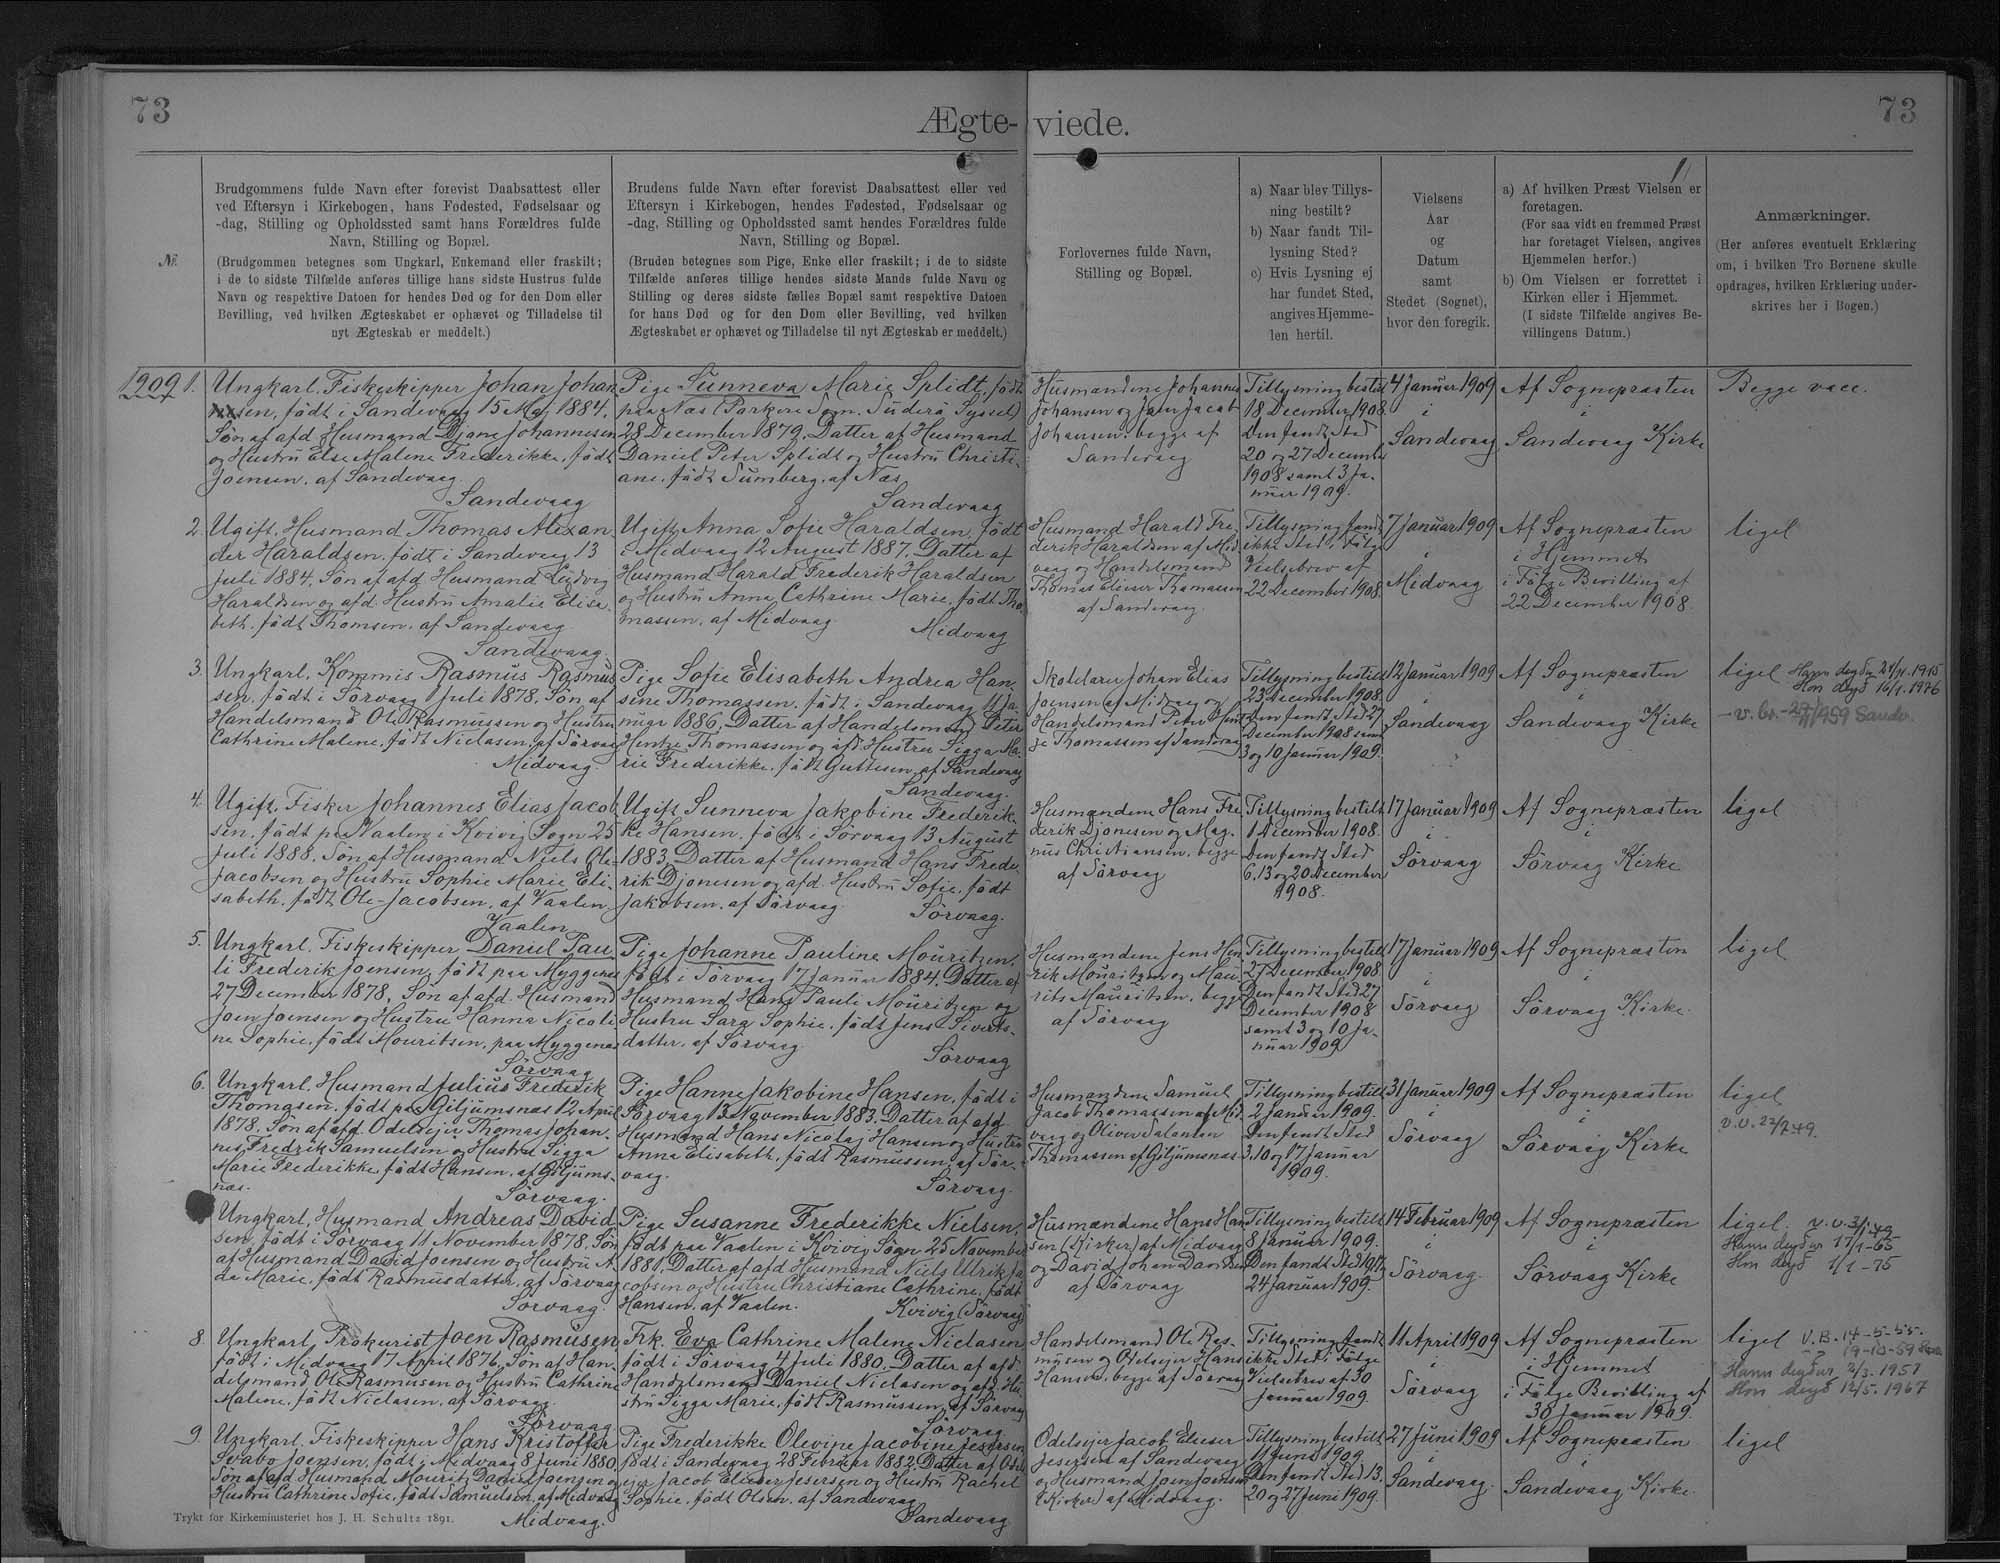 73
Ægte- viede.
73
№
Brudgommens fulde Navn efter forevist Daabsattest eller
ved Eftersyn i Kirkebogen, hans Fødested, Fødselsaar og
-dag, Stilling og Opholdssted samt hans Forældres fulde
Navn, Stilling og Bopæl.
(Brudgommen betegnes som Ungkarl, Enkemand eller fraskilt;
i de to sidste Tilfælde anføres tillige hans sidste Hustrus fulde
Navn og respektive Datoen for hendes Død og for den Dom eller
Bevilling, ved hvilken Ægteskabet er ophævet og Tilladelse til
nyt Ægteskab er meddelt.)
Brudens fulde Navn efter forevist Daabsattest eller ved
Eftersyn i Kirkebogen, hendes Fødested, Fødselsaar og
-dag, Stilling og Opholdssted samt hendes Forældres fulde
Navn, Stilling og Bopæl.
(Bruden betegnes som Pige, Enke eller fraskilt; i de to sidste
Tilfælde anføres tillige hendes sidste Mands fulde Navn og
Stilling og deres sidste fælles Bopæl samt respektive Datoen
for hans Død og for den Dom eller Bevilling, ved hvilken
Ægteskabet er ophævet og Tilladelse til nyt Ægteskab er meddelt.)
Forlovernes fulde Navn,
Stilling og Bopæl.
a) Naar blev Tillys-
ning bestilt?
b) Naar fandt Til-
lysning Sted?
c) Hvis Lysning ej
har fundet Sted,
angives Hjemme-
len hertil.
Vielsens
Aar
og
Datum
samt
Stedet (Sognet),
hvor den foregik.
a) Af hvilken Præst Vielsen er
foretagen.
(For saa vidt en fremmed Præst
har foretaget Vielsen, angives
Hjemmelen herfor.)
b) Om Vielsen er forrettet i
Kirken eller i Hjemmet.
(I sidste Tilfælde angives Be-
villingens Datum.)
Anmærkninger.
(Her anføres eventuelt Erklæring
om, i hvilken Tro Børnene skulle
opdrages, hvilken Erklæring under-
skrives her i Bogen.)
1909 1.
Ungkarl, Fiskeskipper Johan Johan
sen, født i Sandevaag 15 Maj 1884,
Søn af afd Husmand Djone Johannesen
og Hustru Else Malene Frederikke, født
Joensen, af Sandevaag.
Sandevaag
Pige Sunneva Marie Splidt, født
paa Næs (Porkere Sogn, Suderø Syssel)
28 December 1879, Datter af Husmand
Daniel Peter Splidt og Hustru Christi-
ane, født Sumberg, af Næs
Sandevaag
Husmændene Johannes
Johansen og Joen Jacob
Johansen, begge af
Sandevaag
Tillysning bestilt
18 December 1908
Den fandt Sted
20 og 27 December
1908 samt 3 Ja-
nuar 1909.
4 Januar 1909
i
Sandevaag
Af Sognepræsten
i
Sandevaag Kirke
Begge vacc.
2.
Ugift, Husmand Thomas Alexan-
der Haraldsen, født i Sandevaag 13
Juli 1884, Søn af afd Husmand Ludvig
Haraldsen og afd. Hustru Amalie Elisa-
beth, født Thomsen, af Sandevaag
Sandevaag.
Ugift, Anna Sofie Haraldsen, født
i Midvaag 12 August 1887, Datter af
Husmand Harald Frederik Haraldsen
og Hustru Anna Cathrine Marie, født Tho-
massen, af Midvaag
Midvaag
Husmand Harald Fre-
derik Haraldsen af Mid-
vaag og Handelsmand
Thomas Elieser Thomassen
af Sandevaag.
Tillysning fandt
ikke Sted, i Følge
Vielsebrev af
22 December 1908.
7 Januar 1909
i
Midvaag
Af Sognepræsten
i Hjemmet
i Følge Bevilling af
22 December 1908.
ligel
3.
Ungkarl, Kommis Rasmus Rasmus-
sen, født i Sørvaag 1 Juli 1878, Søn af
Handelsmand Ole Rasmussen og Hustru
Cathrine Malene, født Nielasen, af Sørvaag
Midvaag.
Pige Sofie Elisabeth Andrea Han-
sine Thomassen, født i Sandevaag 11 Ja-
nuar 1886, Datter af Handelsmand Peter
Hentze Thomassen og afd. Hustru Sigga Ma-
rie Frederikke, født Guttesen, af Sandevaag
Sandevaag.
Skolelærer Johan Elias
Joensen af Midvaag og
Handelsmand Peter Hent-
ze Thomassen af Sandevaag
Tillysning bestilt
23 December 1908.
Den fandt Sted 27
December 1908 samt
3 og 10 Januar 1909.
12 Januar 1909
i
Sandevaag
Af Sognepræsten
i
Sandevaag Kirke
ligel
4.
Ugift, Fisker Johannes Elias Jacob-
sen, født paa Vaalen i Kvivig Sogn 25
Juli 1888, Søn af Husmand Niels Ole
Jacobsen og Hustru Sophie Marie Eli-
sabeth, født Ole-Jacobsen, af Vaalen
Vaalen
Ugift Sunneva Jakobine Frederik-
ke Hansen, født i Sørvaag 13 August
1883, Datter af Husmand Hans Frede-
rik Djonesen og afd. Hustru Sofie, født
Jakobsen, af Sørvaag
Sørvaag.
Husmændene Hans Fre-
derik Djonesen og Mag-
nus Christiansen, begge
af Sørvaag
Tillysning bestilt
1 December 1908.
Den fandt Sted
6, 13 og 20 December
1908.
17 Januar 1909
i
Sørvaag
Af Sognepræsten
i
Sørvaag Kirke
ligel
5.
Ungkarl, Fiskeskipper Daniel Pau-
li Frederik Joensen, født paa Myggenæs
27 December 1878, Søn af afd. Husmand
Joen Joensen og Hustru Hanna Nicoli-
ne Sophie, født Mouritsen, paa Myggenæs
Sørvaag
Pige Johanne Pauline Mouritzen,
født i Sørvaag 17 Januar 1884, Datter af
Husmand Hans Pauli Mouritzen og
Hustru Sara Sophie, født Jens Siverts-
datter, af Sørvaag
Sørvaag
Husmændene Jens Hen-
rik Mouritzen og Mau-
rits Mauritsen, begge
af Sørvaag
Tillysning bestilt
27 December 1908
Den fandt Sted 27
December 1908
samt 3 og 10 Ja-
nuar 1909
17 Januar 1909
i
Sørvaag
Af Sognepræsten
i
Sørvaag Kirke.
ligel
6.
Ungkarl, Husmand Julius Frederik
Thomasen, født paa Giljumsnæs 12 April
1878, Søn af afd Odelsejer Thomas Johan-
nes Fredrik Samuelsen og Hustru Sigga
Marie Frederikke, født Hansen, af Giljums-
næs.
Sørvaag.
Pige Hanne Jakobine Hansen, født i
Sørvaag 13 November 1883, Datter af afd
Husmand Hans Nicolaj Hansen og Hustru
Anna Elisabeth, født Rasmussen, af Sør-
vaag.
Sørvaag.
Husmændene Samuel
Jacob Thomassen af Mid-
vaag og Oliver Salamon
Thomassen af Giljumsnæs
Tillysning bestilt
2 Januar 1909.
Den fandt Sted
3, 10 og 17 Januar
1909.
31 Januar 1909
i
Sørvaag
Af Sognepræsten
i
Sørvaag Kirke
ligel
Ungkarl, Husmand Andreas David-
sen, født i Sørvaag 11 November 1878, Søn
af Husmand David Joensen og Hustru A-
da Marie, født Rasmusdatter, af Sørvaag
Sørvaag.
Pige Susanne Frederikke Nielsen,
født paa Vaalen i Kvivig Sogn 25 November
1881, Datter af afd Husmand Niels Ulrik Ja-
cobsen og Hustru Christiane Cathrine, født
Hansen, af Vaalen.
Kvivig (Sørvaag)
Husmændene Hans Han-
sen (Kirker) af Midvaag
og David Johan Danielsen
af Sørvaag
Tillysning bestilt
8 Januar 1909.
Den fandt Sted
24 Januar 1909.
14 Februar 1909
i
Sørvaag.
Af Sognepræsten
i
Sørvaag Kirke
ligel.
Hann deyður 17/1-65
Hon deyð 1/1-75
8.
Ungkarl, Prokurist Joen Rasmusen
født i Midvaag 17 April 1876, Søn af Han-
delsmand Ole Rasmusen og Hustru Cathrine
Malene, født Nielasen, af Sørvaag.
Sørvaag
Frk. Eva Cathrine Malene Nielasen
født i Sørvaag 4 Juli 1880, Datter af afd.
Handelsmand Daniel Nielasen og afd. Hu-
stru Sigga Marie, født Rasmussen, af Sørvaag
Sørvaag
Handelsmand Ole Ras-
musen og Odelsejer Hans
Hansen, begge af Sørvaag
Tillysning fandt
ikke Sted, i Følge
Vielsebrev af 30
Januar 1909.
11 April 1909
i
Sørvaag
Af Sognepræsten
i Hjemmet
i Følge Bevilling af
30 Januar 1909.
ligel V.B. 14-5-55.
Hann deyður 2/3. 1957
Hon deyð 12/5. 1967
9.
Ungkarl, Fiskeskipper Hans Kristoffer
Svabo Joensen, født i Midvaag 8 Juni 1880,
Søn af afd Husmand Mourits Daniel Joensen og
Hustru Cathrine Sofie, født Samuelsen, af Midvaag
Midvaag.
Pige Frederikke Olevine Jacobine Jesersen
født i Sandevaag 28 Februar 1882, Datter af Odels-
ejer Jacob Elieser Jesersen og Hustru Rachel
Sophie, født Olsen, af Sandevaag
Sandevaag
Odelsejer Jacob Elieser
Jesersen af Sandevaag
og Husmand Joen Joensen
(Kirker) af Midvaag.
Tillysning bestilt
11 Juni 1909.
Den fandt Sted 13,
20 og 27 Juni 1909.
27 Juni 1909
i
Sandevaag.
Af Sognepræsten
i
Sandevaag Kirke.
ligel
Trykt for Kirkeministeriet hos J. H. Schultz 1891.